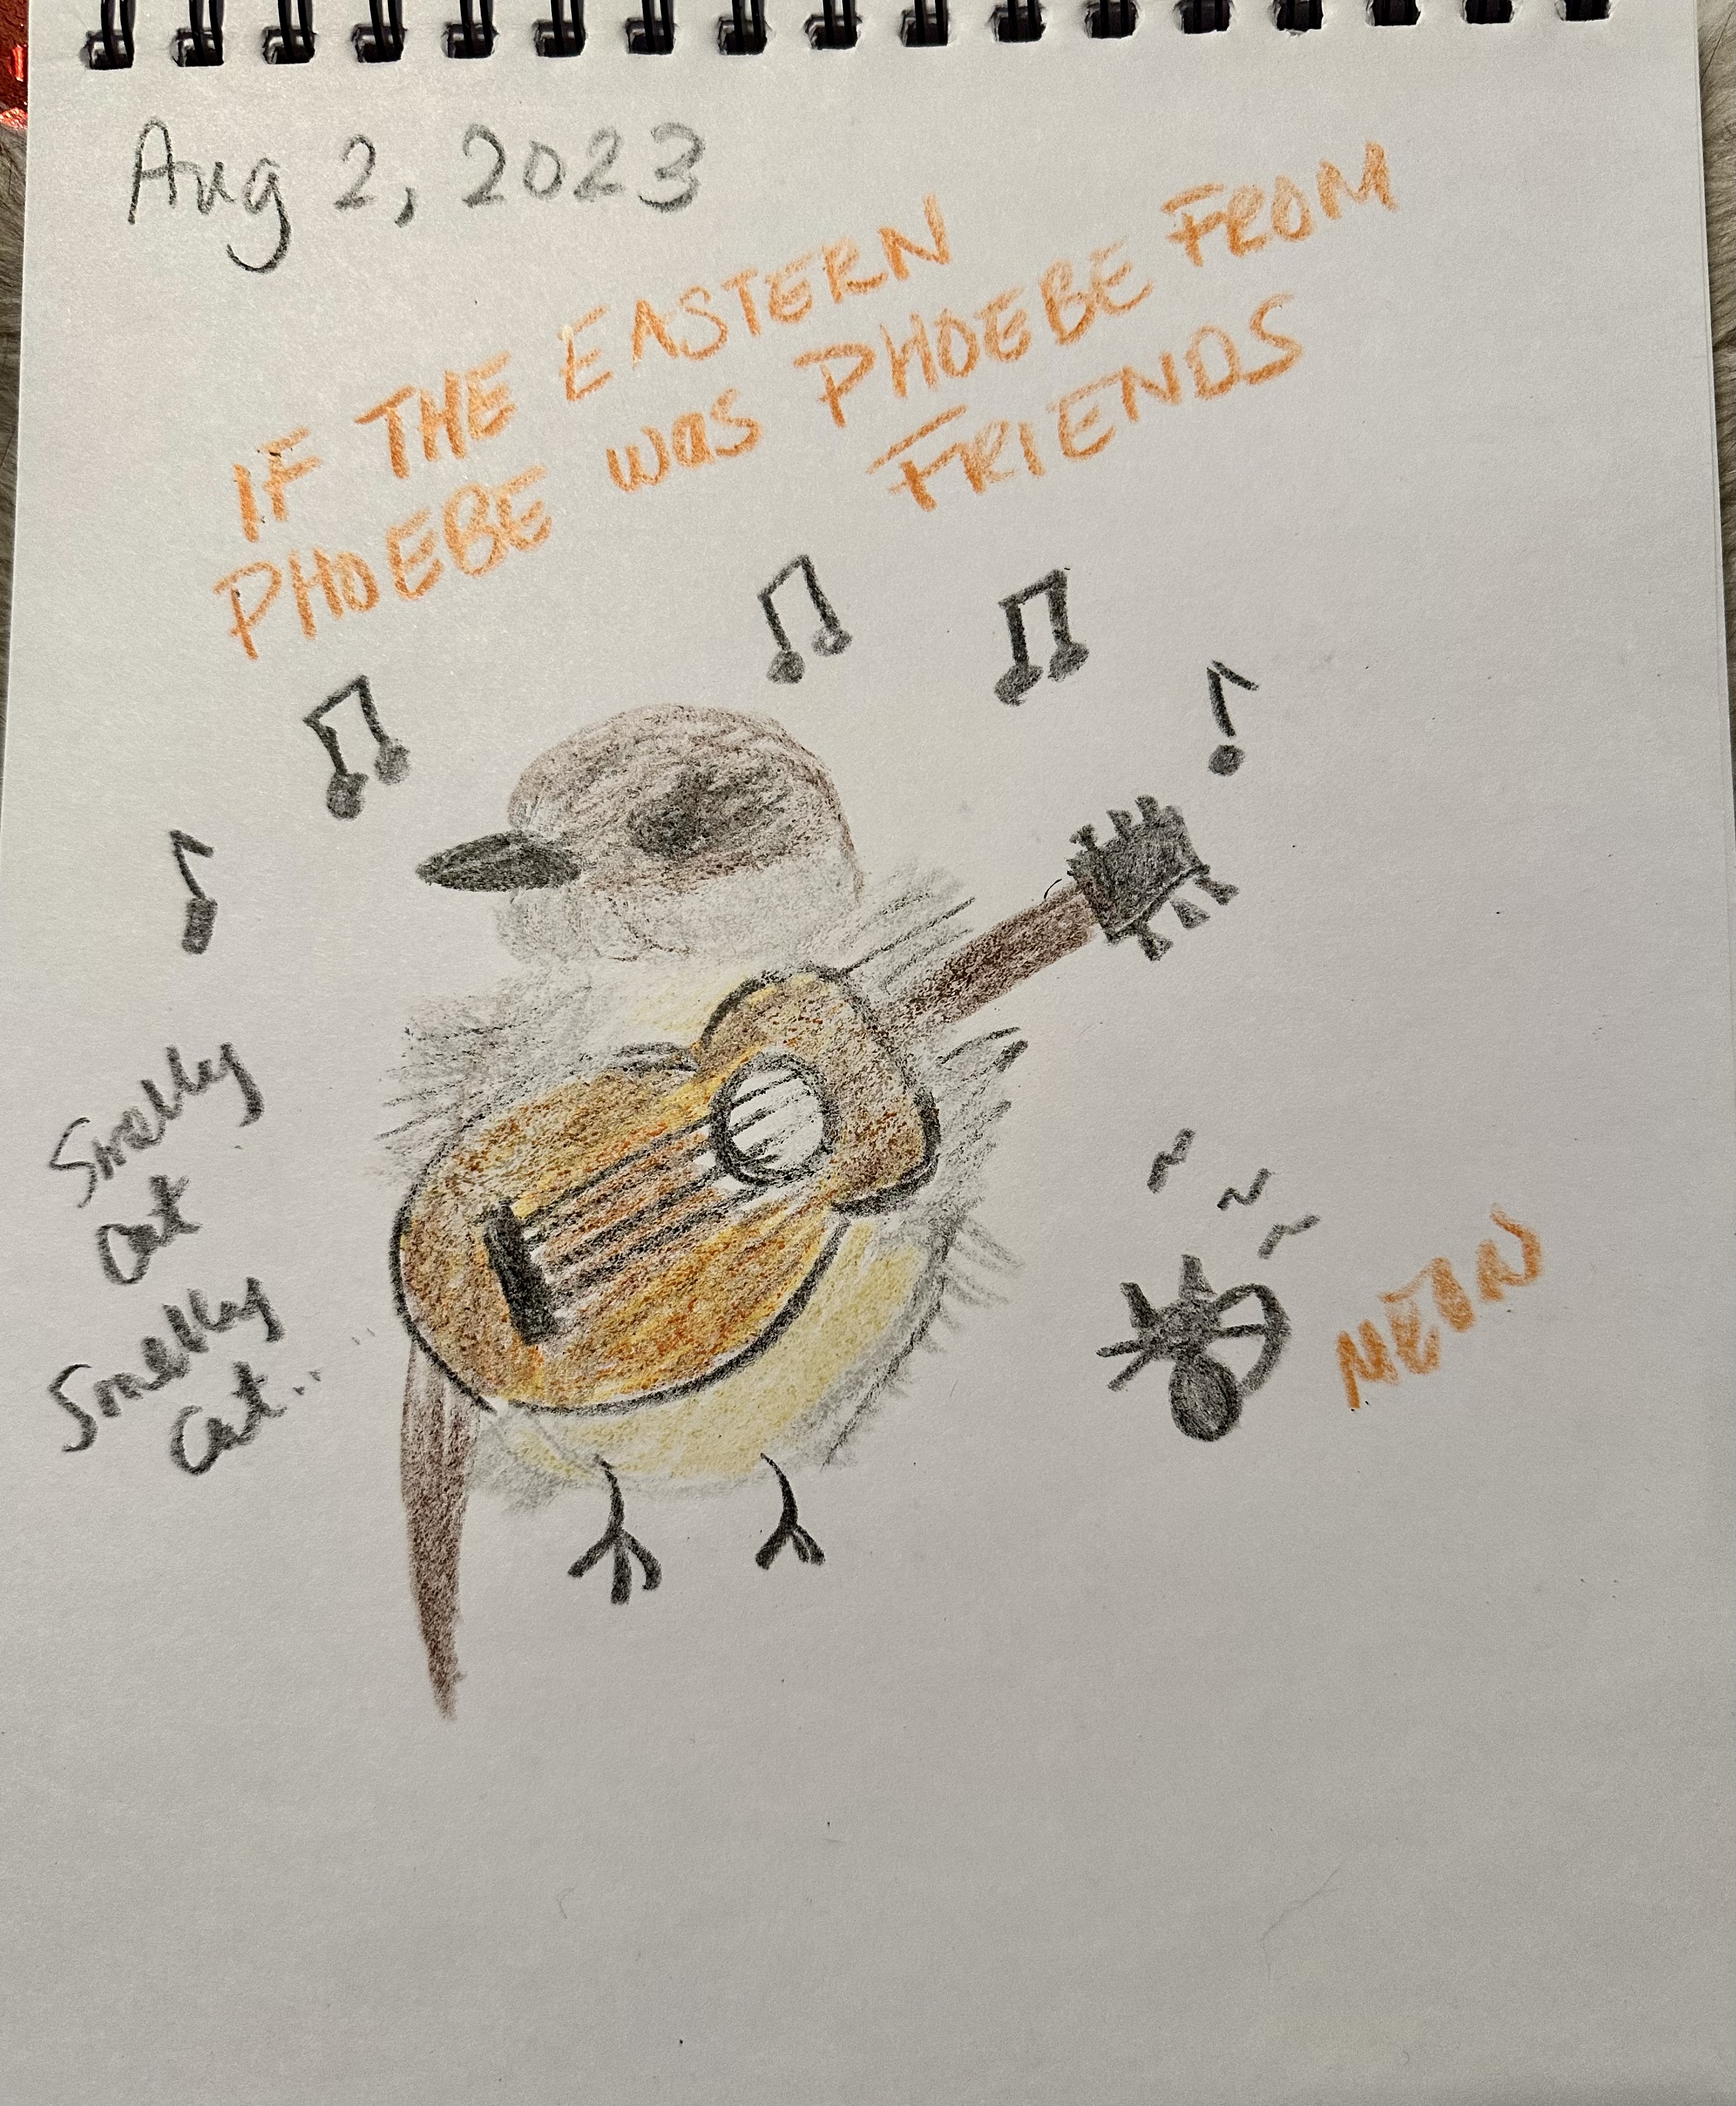 Aug 2, 2023
IF THE EASTERN
PHOEBE was PHOEBE FROM
FRIENDS
Smelly
Cat
Smelly
Cat..
MEOW